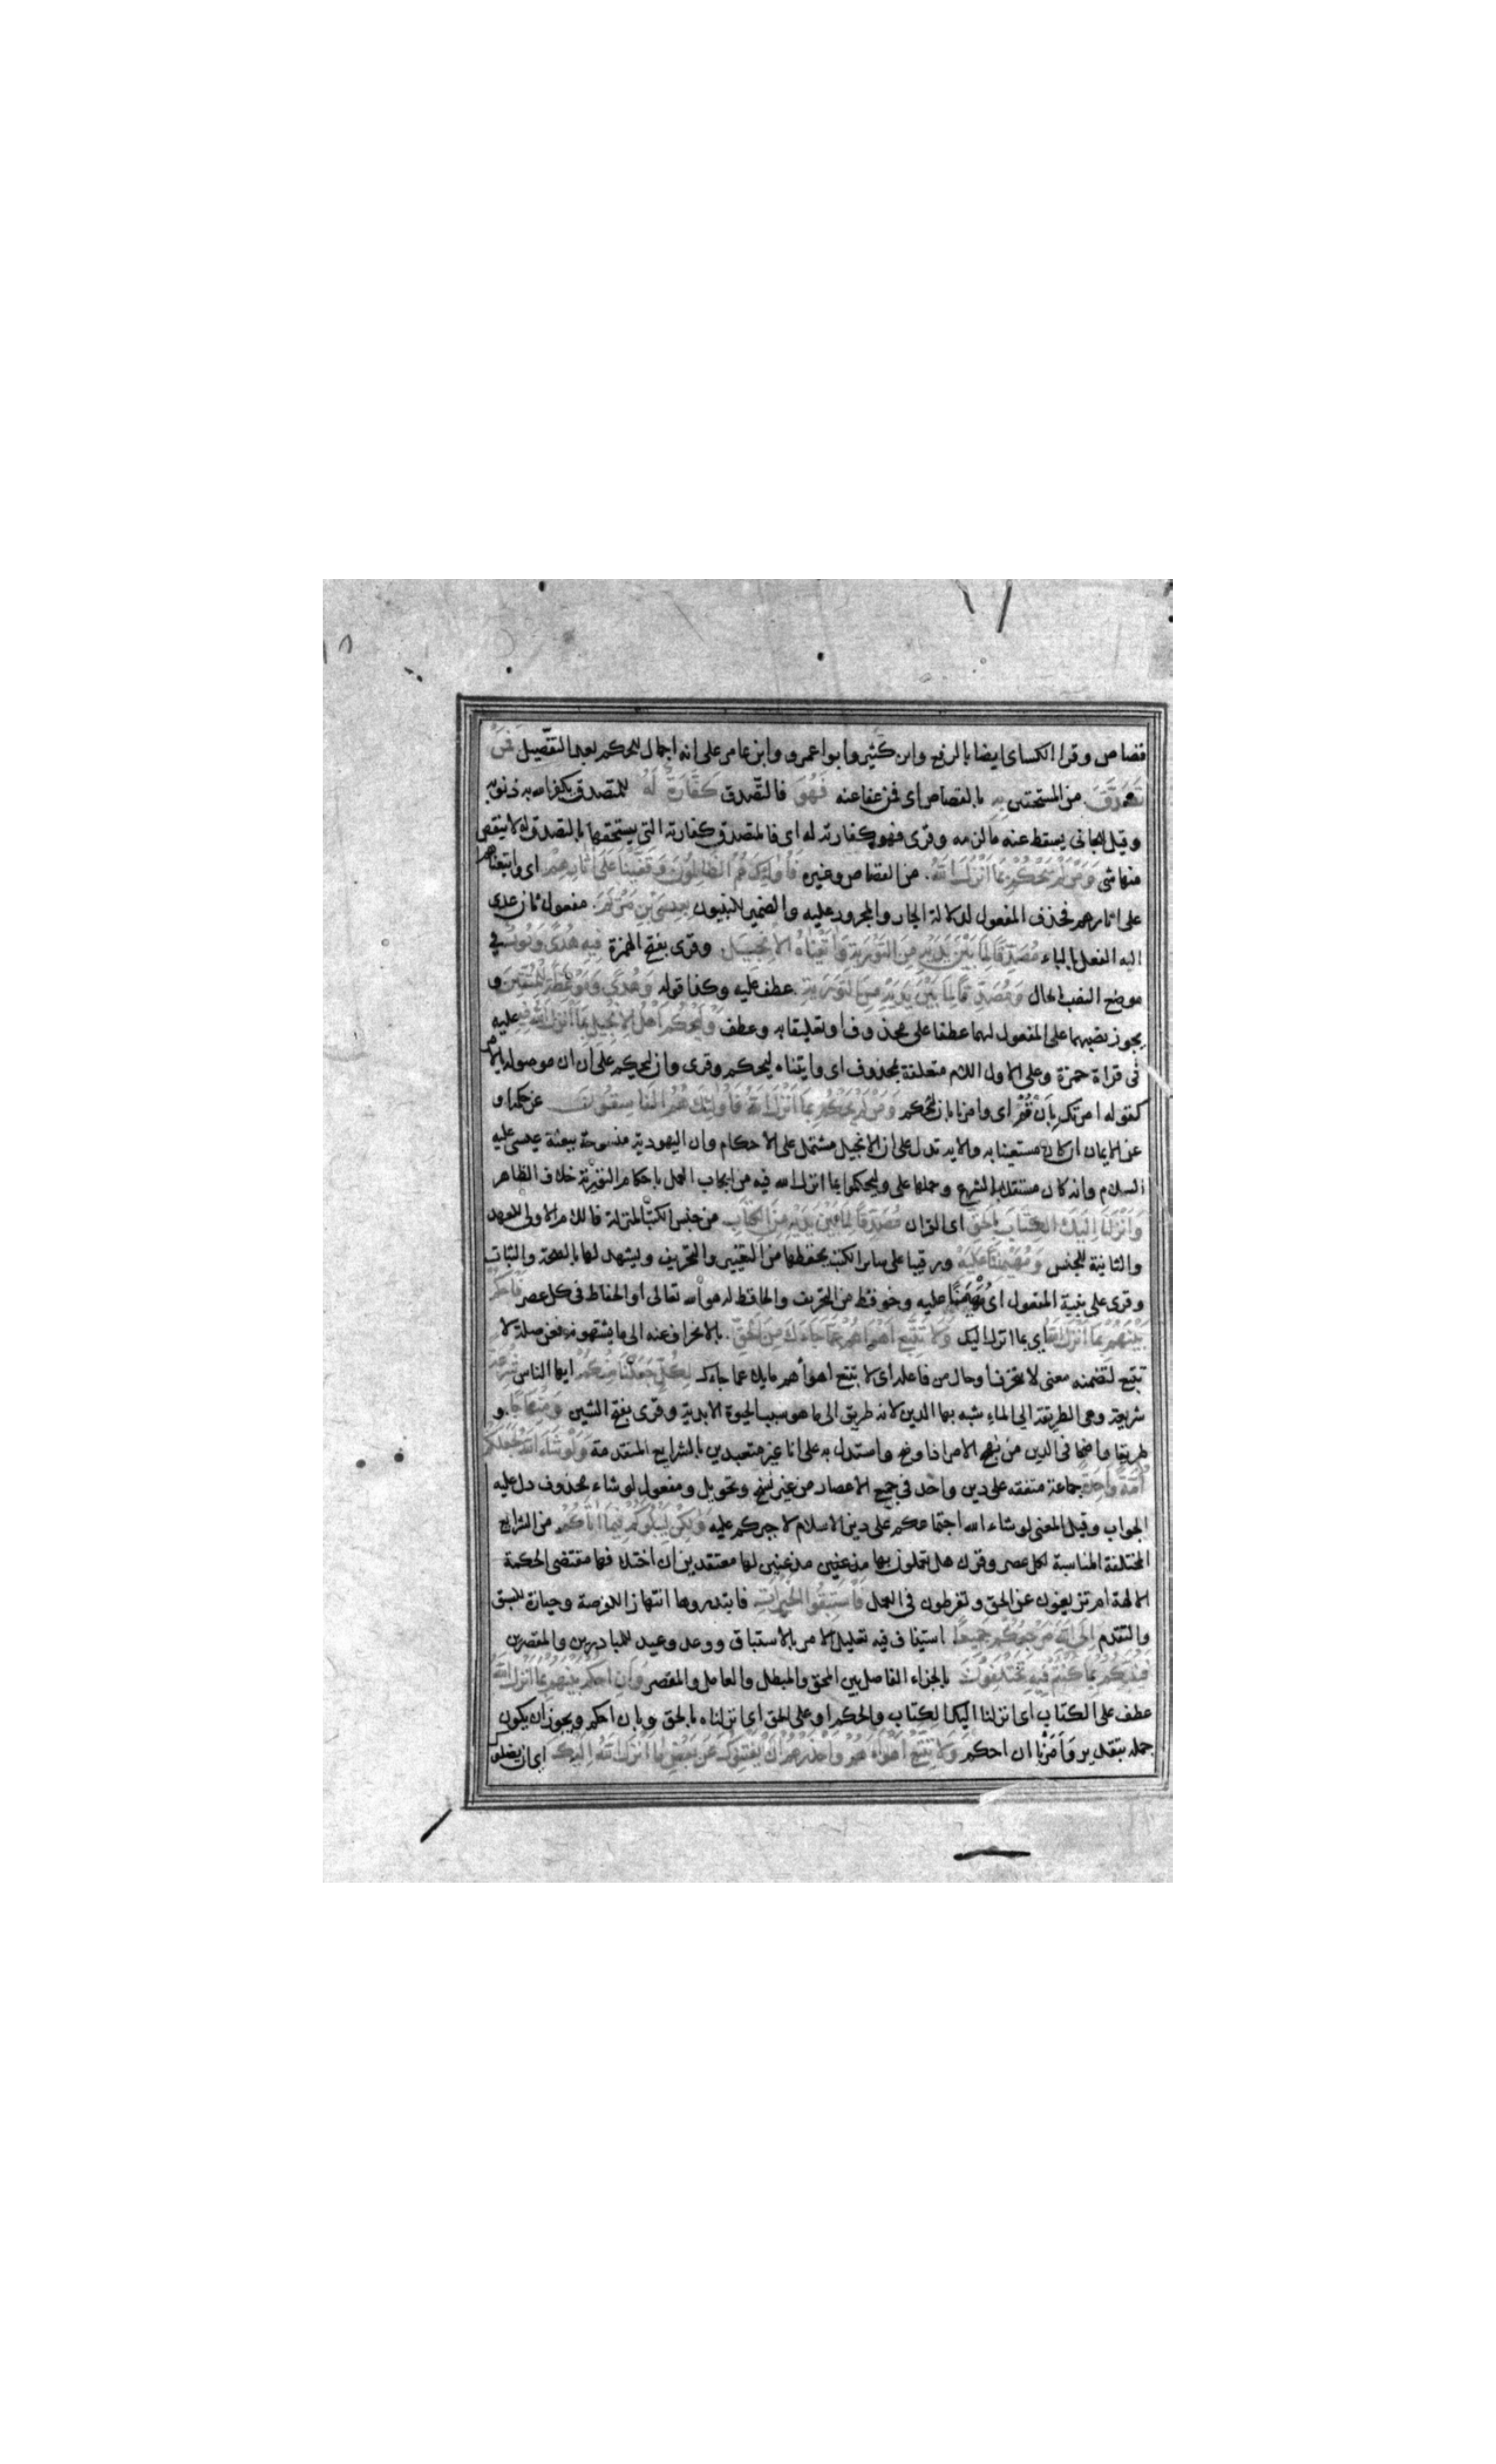 قصاص وقرا الكساى ايضا بالرفع وابن كثير وابوا عمرو وابن عامر على انه اجمال للحكم بعد التفصيل فَمَنْ
تَصَدَّقَ من المستحقين بِهِ بالقصاص اى فمن عفا عنه فَهُوَ فالتصدق كَفَّارَةٌ لَهُ للمتصدق يكفر الله به ذنوبه
وقيل للجانى يسقط عنه ما لزمه وقرى فهو كفارته له اى فالمتصدق كفارته التى يستحقها بالتصدق له لا ينقص
منها شى وَمَنْ لَمْ يَحْكُمْ بِمَا اَنْزَلَ اللّٰهُ من القصاص وغيره فَاُولٰئِكَ هُمُ الظَّالِمُونَ وَقَفَّيْنَا عَلَى اٰثَارِهِمْ اى واتبعناهم
على اثارهم فحذف المفعول لدلالة الجار والمجرور عليه والضمير للنبيون بِعِيسَى بْنِ مَرْيَمَ مفعول ثان عدى
اليه الفعل بالباء مُصَدِّقًا لِمَا بَيْنَ يَدَيْهِ مِنَ التَّوْرٰيةِ وَاٰتَيْنَاهُ الْاِنْجِيلَ وقرى بفتح الهمزة فِيهِ هُدًى وَنُورٌ فى
موضع النصب بالحال وَمُصَدِّقًا لِمَا بَيْنَ يَدَيْهِ مِنَ التَّوْرٰيةِ عطف عليه وكذا قوله وَهُدًى وَمَوْعِظَةً لِلْمُتَّقِينَ و
يجوز نصبهما على المفعول لهما عطفا على محذوف او تعليقا به وعطف وَلْيَحْكُمْ اَهْلُ الْاِنْجِيلِ بِمَا اَنْزَلَ اللّٰهُ فِيهِ عليه
فى قراة حمزة وعلى الاول اللام متعلقة بمحذوف اى واتيناه ليحكم وقرى وان ليحكم على ان ان موصولة بالامر
كقوله امرتك بِاَنْ قُمْ اى وامرنا بان ليحكم وَمَنْ لَمْ يَحْكُمْ بِمَا اَنْزَلَ اللّٰهُ فَاُولٰئِكَ هُمُ الْفَاسِقُونَ عن حكمه او
عن الايمان ان كان مستهينا به والاية تدل على ان الانجيل مشتمل على الاحكام وان اليهودية منسوخة ببعثة عيسى عليه
السلام وانه كان مستقلا بالشرع وحملها على وليحكموا بما انزل الله فيه من ايجاب العمل باحكام التورية خلاف الظاهر
وَاَنْزَلْنَا اِلَيْكَ الْكِتَابَ بِالْحَقِّ اى القران مُصَدِّقًا لِمَا بَيْنَ يَدَيْهِ مِنَ الْكِتَابِ من جنس الكتب المنزلة فاللام الاولى للعهد
والثانية للجنس وَمُهَيْمِنًا عَلَيْهِ ورقيبا على ساير الكتب يحفظها من التغيير والتحريف ويشهد لها بالصحة والثبات
وقرى على بنية المفعول اى مُهَيْمَنًا عليه وحوفظ من التحريف والحافظ له هو الله تعالى او الحفاظ فى كل عصر فَاحْكُمْ
بَيْنَهُمْ بِمَا اَنْزَلَ اللّٰهُ اى بما انزل اليك وَلَا تَتَّبِعْ اَهْوَاءَهُمْ عَمَّا جَاءَكَ مِنَ الْحَقِّ بالانحراف عنه الى ما يشتهونه فعن صلة لا
تتبع لتضمنه معنى لا تنحرف او حال من فاعله اى لا تتبع اهواءهم مايلا عما جاءك لِكُلٍّ جَعَلْنَا مِنْكُمْ ايها الناس شِرْعَةً
شريعة وهى الطريقة الى الماء شبه بها الدين لانه طريق الى ما هو سبب الحيوة الابدية وقرى بفتح الشين وَمِنْهَاجًا و
طريقا واضحا فى الدين من نهج الامر اذا وضح واستدل به على انا غير متعبدين بالشرايع المتقدمة وَلَوْ شَاءَ اللّٰهُ لَجَعَلَكُمْ
اُمَّةً وَاحِدَةً جماعة متفقه على دين واحد فى جميع الاعصار من غير نسخ وتحويل ومفعول لو شاء محذوف دل عليه
الجواب وقيل المعنى لو شاء الله اجتماعكم على دين الاسلام لاجبركم عليه وَلٰكِنْ لِيَبْلُوَكُمْ فِيمَا اٰتٰيكُمْ من الشرايع
المختلفة المناسبة لكل عصر وقرن هل تعملون بها مذعنين مذعنين لها معتقدين ان اختلافها مقتضى الحكمة
الالهة ام تزيغون عن الحق وتفرطون فى العمل فَاسْتَبِقُوا الْخَيْرَاتِ فابتدروها انتهازا للفرصة وحيازة للسبق
والتقدم اِلَى اللّٰهِ مَرْجِعُكُمْ جَمِيعًا استيناف فيه تعليل الامر بالاستباق ووعد وعيد للمبادرين والمقصرين
فَيُنَبِّئُكُمْ بِمَا كُنْتُمْ فِيهِ تَخْتَلِفُونَ بالجزاء الفاصل بين المحق والمبطل والعامل والمقصر وَاَنِ احْكُمْ بَيْنَهُمْ بِمَا اَنْزَلَ اللّٰهُ
عطف على الكتاب اى انزلنا اليك الكتاب والحكم او على الحق اى انزلناه بالحق وبان احكم ويجوز ان يكون
جمله بتقدير وَاَمَرْنا ان احكم وَلَا تَتَّبِعْ اَهْوَاءَهُمْ وَاحْذَرْهُمْ اَنْ يَفْتِنُوكَ عَنْ بَعْضِ مَا اَنْزَلَ اللّٰهُ اِلَيْكَ اى ان يضلوك